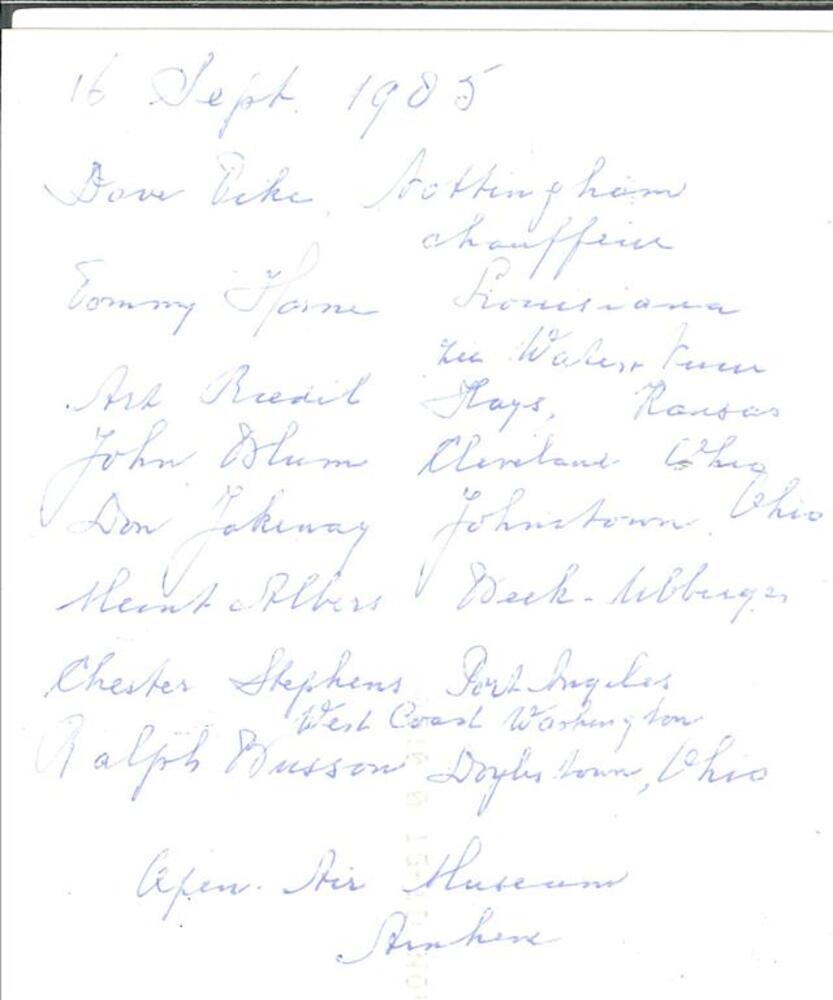 16 Sept. 1985
Dave Pike, Nottingham
chauffeur
Tommy Horne Louisiana
zie
Art Hays, Kansas
John Blum Cleveland Ohio
Don Jakeway Johnstown, Ohio
Meint Albers Beek-Ubbergen
Chester Stephens Port Angeles
West Coast Washington
Ralph Busson Doylestown, Ohio
Open-Air Museum
Arnhem